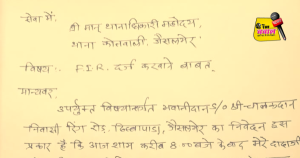 सेवा में,
श्री मान् थानाधिकारी महोदय,
थाना कोतवाली, जैसलमेर
विषय:- F.I.R. दर्ज करवाने बाबत्
मान्यवर,
उपर्युक्त विषयान्तर्गत भवानीदान S/O श्री
निवासी रिंग रोड़, डिब्बापाड़ा, जैसलमेर का निवेदन इस
प्रकार है कि आज शाम करीब 8:00 बजे के बाद मेरे दादाजी